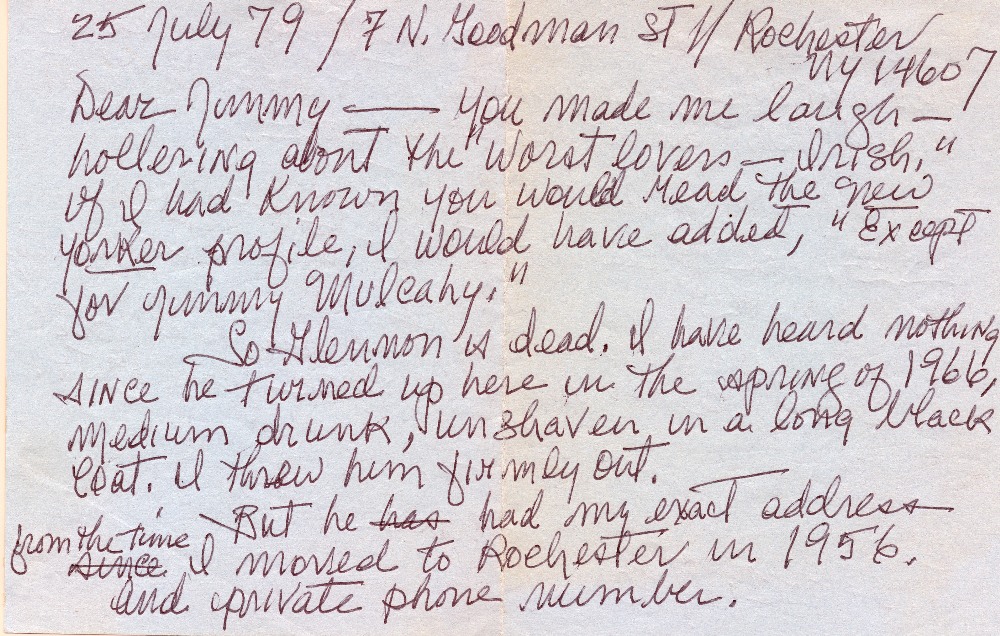 25 July 79 / 7 N. Goodman St // Rochester
NY 14607
Dear Jimmy —— you made me laugh —
hollering about the "worst lovers — Irish."
If I had known you would read The New
Yorker profile, I would have added, "Except
for Jimmy Mulcahy."
So Glennon is dead. I have heard nothing
since he turned up here in the spring of 1966,
medium drunk, unshaven in a long black
coat. I threw him firmly out.
But he has had my exact address
from the time
since I moved to Rochester in 1956.
and private phone number.